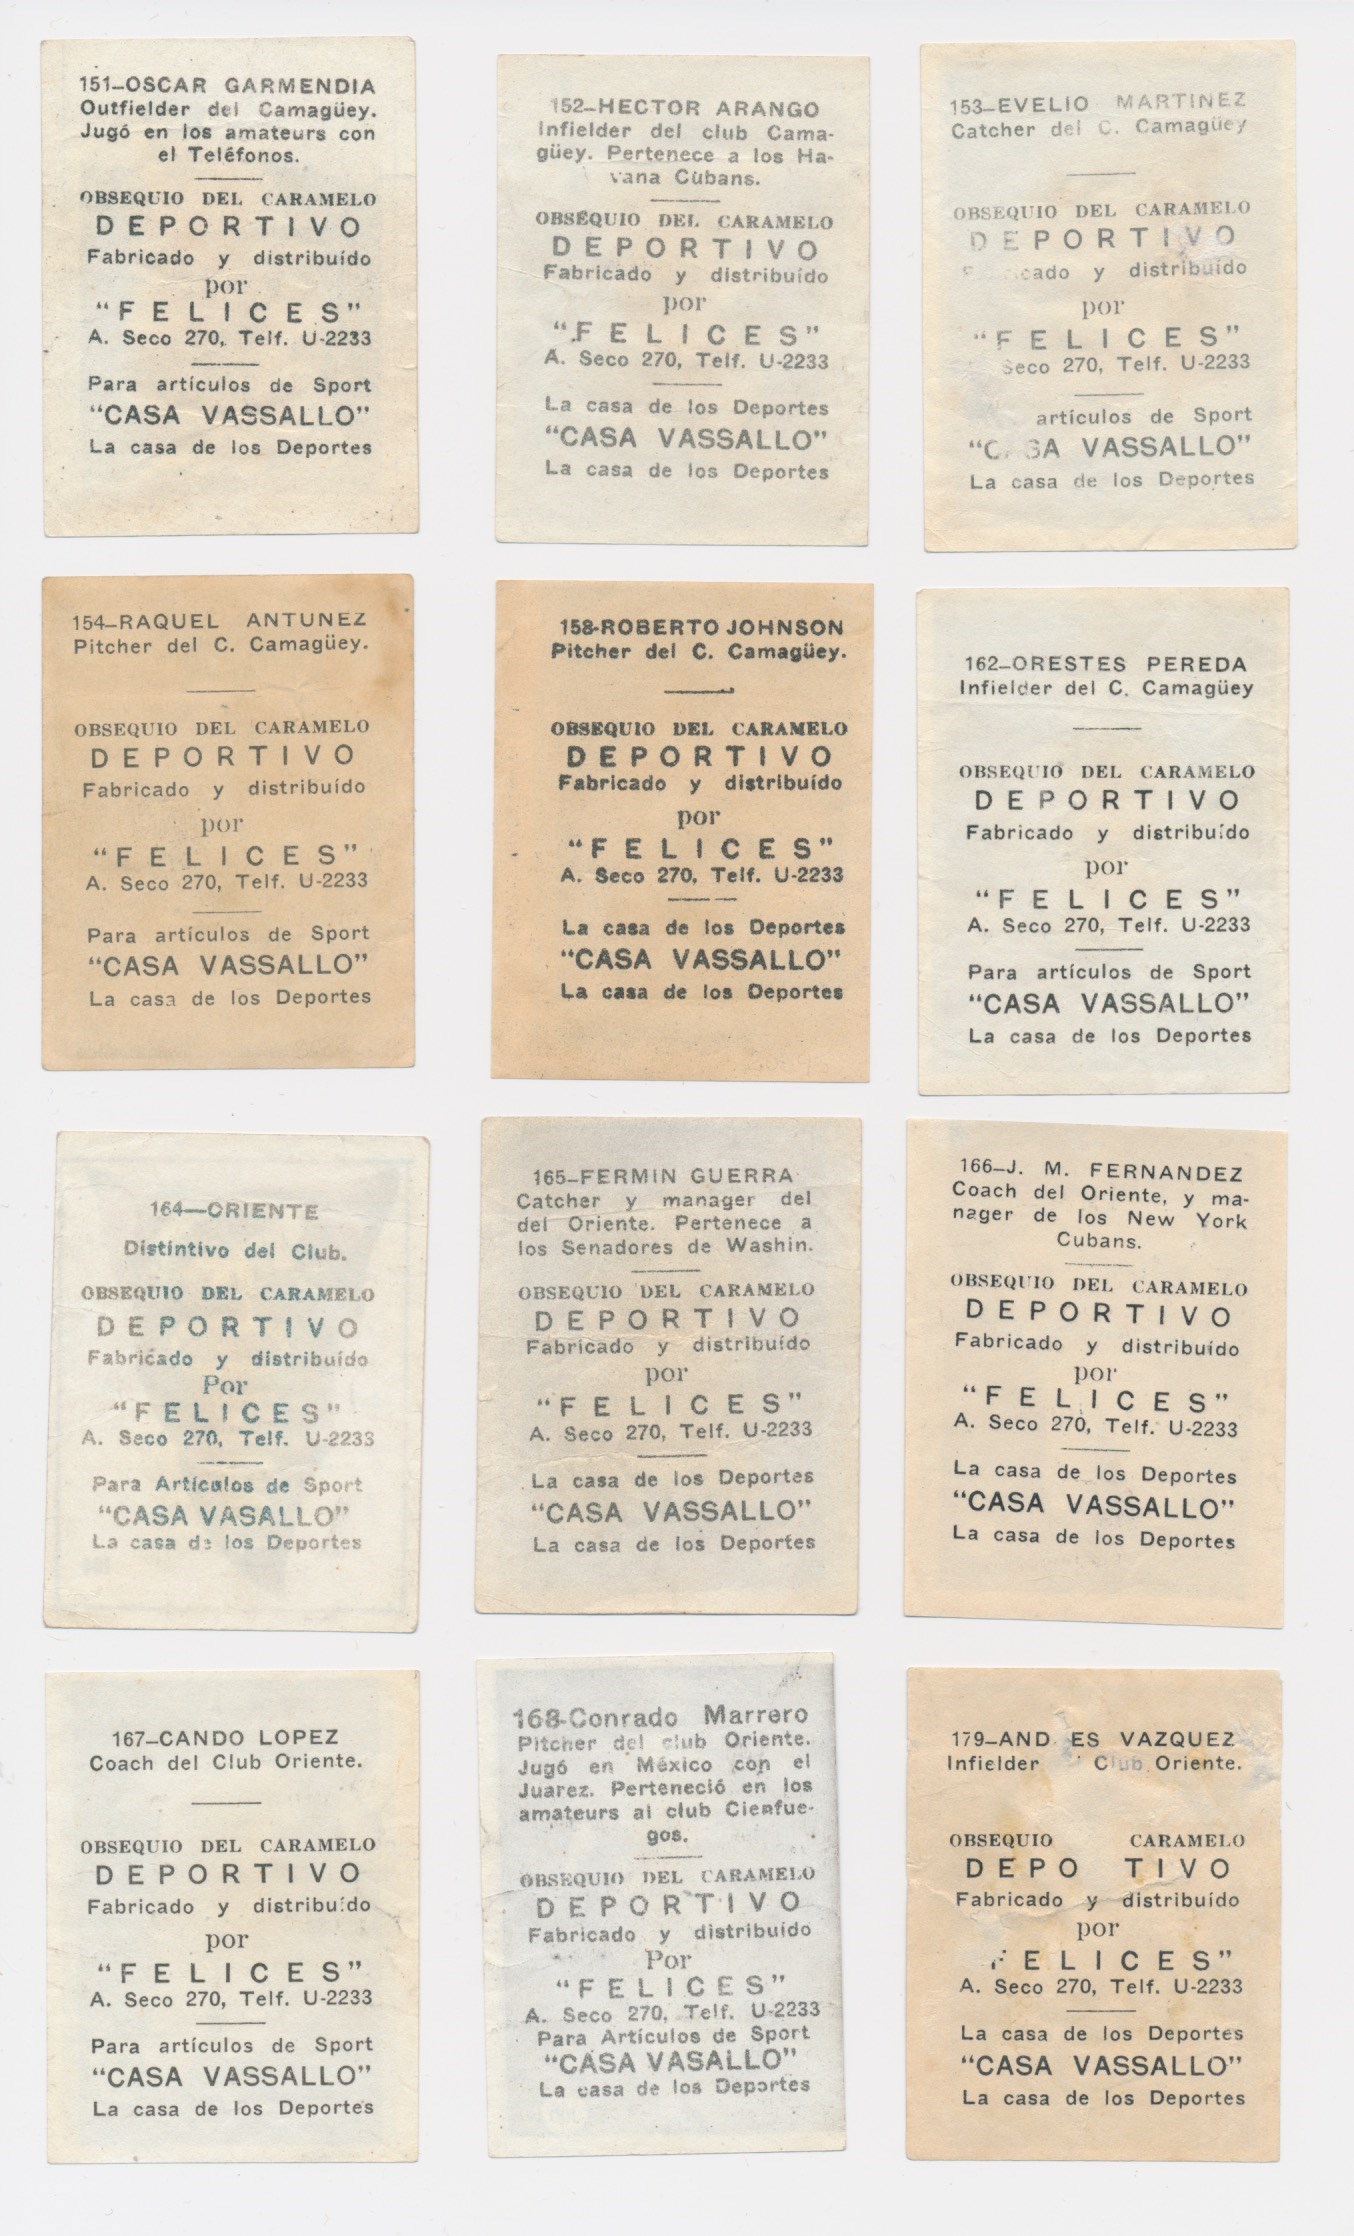 151—OSCAR GARMENDIA
Outfielder del Camagüey.
Jugó en los amateurs con
el Teléfonos.
OBSEQUIO DEL CARAMELO
DEPORTIVO
Fabricado y distribuído
por
"FELICES"
A. Seco 270, Telf. U-2233
Para artículos de Sport
"CASA VASSALLO"
La casa de los Deportes
152—HECTOR ARANGO
Infielder del club Cama-
güey. Pertenece a los Ha-
vana Cubans.
OBSEQUIO DEL CARAMELO
DEPORTIVO
Fabricado y distribuído
por
"FELICES"
A. Seco 270, Telf. U-2233
La casa de los Deportes
"CASA VASSALLO"
La casa de los Deportes
153—EVELIO MARTINEZ
Catcher del C. Camagüey
OBSEQUIO DEL CARAMELO
DEPORTIVO
y distribuído
por
"FELICES"
Seco 270, Telf. U-2233
artículos de Sport
"CASA VASSALLO"
La casa de los Deportes
154—RAQUEL ANTUNEZ
Pitcher del C. Camagüey.
OBSEQUIO DEL CARAMELO
DEPORTIVO
Fabricado y distribuído
por
"FELICES"
A. Seco 270, Telf. U-2233
Para artículos de Sport
"CASA VASSALLO"
La casa de los Deportes
158-ROBERTO JOHNSON
Pitcher del C. Camagüey.
OBSEQUIO DEL CARAMELO
DEPORTIVO
Fabricado y distribuído
por
"FELICES"
A. Seco 270, Telf. U-2233
La casa de los Deportes
"CASA VASSALLO"
La casa de los Deportes
162—ORESTES PEREDA
Infielder del C. Camagüey
OBSEQUIO DEL CARAMELO
DEPORTIVO
Fabricado y distribuído
por
"FELICES"
A. Seco 270, Telf. U-2233
Para artículos de Sport
"CASA VASSALLO"
La casa de los Deportes
164—ORIENTE
Distintivo del Club.
OBSEQUIO DEL CARAMELO
DEPORTIVO
Fabricado y distribuído
Por
"FELICES"
A. Seco 270, Telf. U-2233
Para Artículos de Sport
"CASA VASALLO"
La casa de los Deportes
165—FERMIN GUERRA
Catcher y manager del
del Oriente. Pertenece a
los Senadores de Washin.
OBSEQUIO DEL CARAMELO
DEPORTIVO
Fabricado y distribuído
por
"FELICES"
A. Seco 270, Telf. U-2233
La casa de los Deportes
"CASA VASSALLO"
La casa de los Deportes
166—J. M. FERNANDEZ
Coach del Oriente, y ma-
nager de los New York
Cubans.
OBSEQUIO DEL CARAMELO
DEPORTIVO
Fabricado y distribuído
por
"FELICES"
A. Seco 270, Telf. U-2233
La casa de los Deportes
"CASA VASSALLO"
La casa de los Deportes
167—CANDO LOPEZ
Coach del Club Oriente.
OBSEQUIO DEL CARAMELO
DEPORTIVO
Fabricado y distribuído
por
"FELICES"
A. Seco 270, Telf. U-2233
Para artículos de Sport
"CASA VASSALLO"
La casa de los Deportes
168-Conrado Marrero
Pitcher del club Oriente.
Jugó en México con el
Juarez. Perteneció en los
amateurs al club Cienfue-
gos.
OBSEQUIO DEL CARAMELO
DEPORTIVO
Fabricado y distribuído
Por
"FELICES"
A. Seco 270, Telf. U-2233
Para Artículos de Sport
"CASA VASALLO"
La casa de los Deportes
179—AND ES VAZQUEZ
Infielder Club Oriente.
OBSEQUIO CARAMELO
DEPO TIVO
Fabricado y distribuído
por
FELICES"
A. Seco 270, Telf. U-2233
La casa de los Deportes
"CASA VASSALLO"
La casa de los Deportes